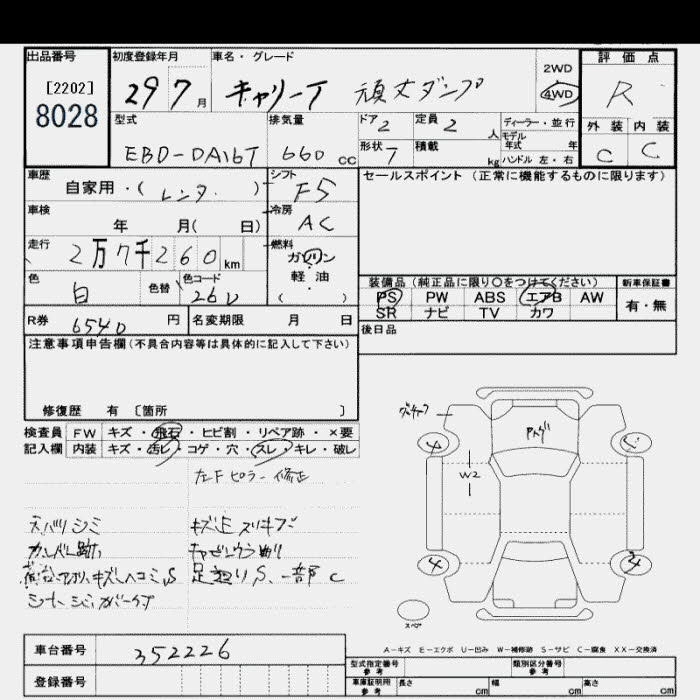 出品番号
[2202]
8028
初度登録年月
29 7月
車名・グレード
キャリーT 頑丈ダンプ
2WD
4WD
評価点
R
型式
EBD-DA16T
排気量
660 cc
ドア 2
定員 2 人
形状 7
積載 kg
ディーラー・並行
モデル年式 年
ハンドル 左・右
外装 内装
C C
車歴
自家用・( レンタ )
シフト
F5
車検
年 月( 日)
冷房
AC
走行
2万7千260km
燃料
ガソリン
軽油
( )
色
白
色替
色コード
26U
R券 6540 円
名変期限 月 日
セールスポイント(正常に機能するものに限ります)
装備品(純正品に限り○をつけてください)
PS PW ABS エアB AW
SR ナビ TV カワ
新車保証書
有・無
後日品
注意事項申告欄(不具合内容等は具体的に記入して下さい)
修復歴 有 〔箇所 〕
検査員 FW キズ・飛石・ヒビ割・リペア跡・×要
記入欄 内装 キズ・汚レ・コゲ・穴・スレ・キレ・破レ
左Fピラー修正
シミ
足廻りS、一部C
W2
4
4
3
スペア
A-キズ E-エクボ U-凹み W-補修跡 S-サビ C-腐食 XX-交換済
車台番号 352226
登録番号
型式指定番号 参考
類別区分番号 参考
車庫証明用 参考
長さ cm 幅 cm 高さ cm